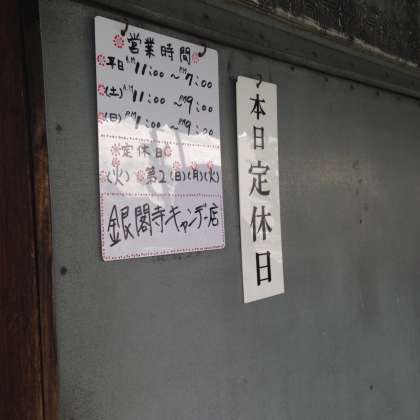 営業時間
平日 AM11:00～PM7:00
(土) AM11:00～PM9:00
(日) AM11:00～PM9:00
定休日
(火) 第2(日)(月)(火)
銀閣寺キャンデー店
本日定休日